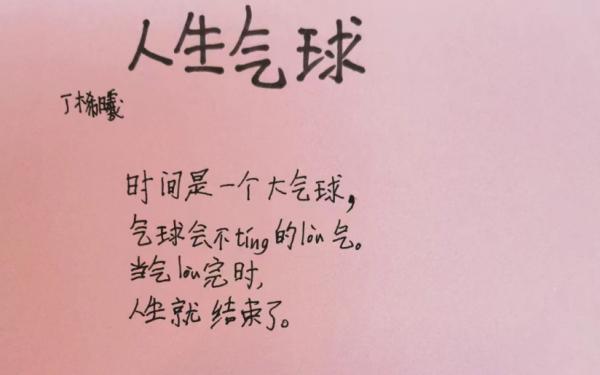 人生气球
丁桸曦
时间是一个大气球，
气球会不tíng的lòu气。
当气lòu完时，
人生就结束了。